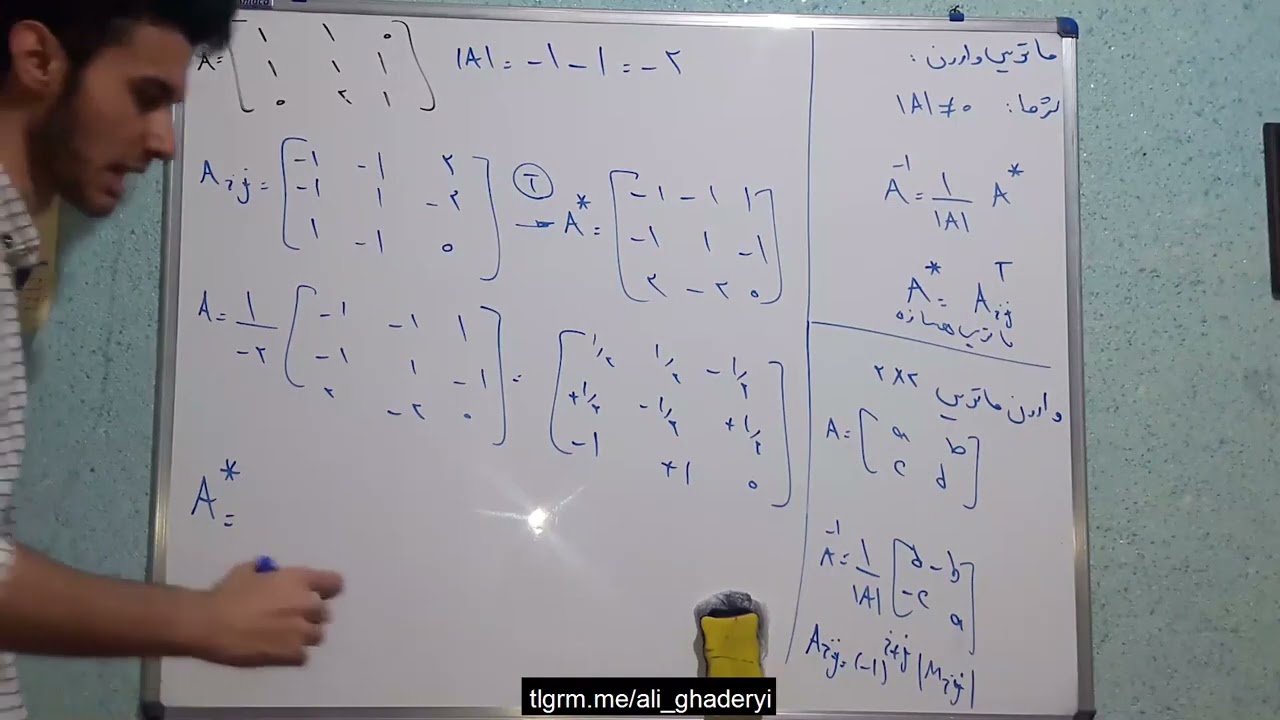 A = [ ۱ ۱ ۰
۱ ۱ ۱
۰ ۲ ۱ ]
|A| = -۱ - ۱ = -۲
Aij = [ -۱ -۱ ۲
-۱ ۱ -۲
۱ -۱ ۰ ]
T → A* = [ -۱ -۱ ۱
-۱ ۱ -۱
۲ -۲ ۰ ]
A = ۱/-۲ [ -۱ -۱ ۱
-۱ ۱ -۱
۲ -۲ ۰ ]
= [ ۱/۲ ۱/۲ -۱/۲
+۱/۲ -۱/۲ +۱/۲
-۱ +۱ ۰ ]
A* =
ماتریس وارون :
|A| ≠ ۰
A⁻¹ = ۱/|A| A*
A* = Aijᵀ
ماتریس همسازه
وارون ماتریس ۲×۲
A = [ a b
c d ]
A⁻¹ = ۱/|A| [ d -b
-c a ]
Aij = (-۱)^i+j |Mij|
tlgrm.me/ali_ghaderyi